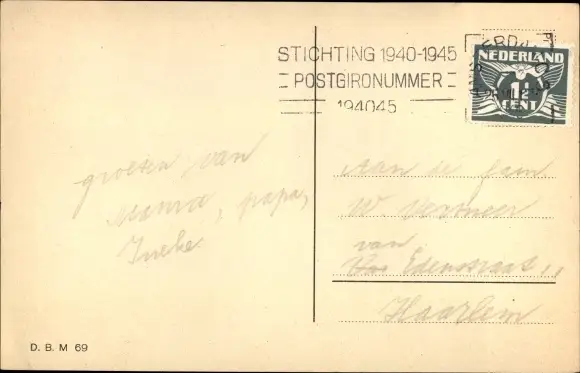 STICHTING 1940-1945
POSTGIRONUMMER
194045
NEDERLAND
1½
CENT
groeten van
mama, papa,
Ineke
Aan de fam
W. Vermeer
van
Edenstraat 11
Haarlem
D. B. M 69